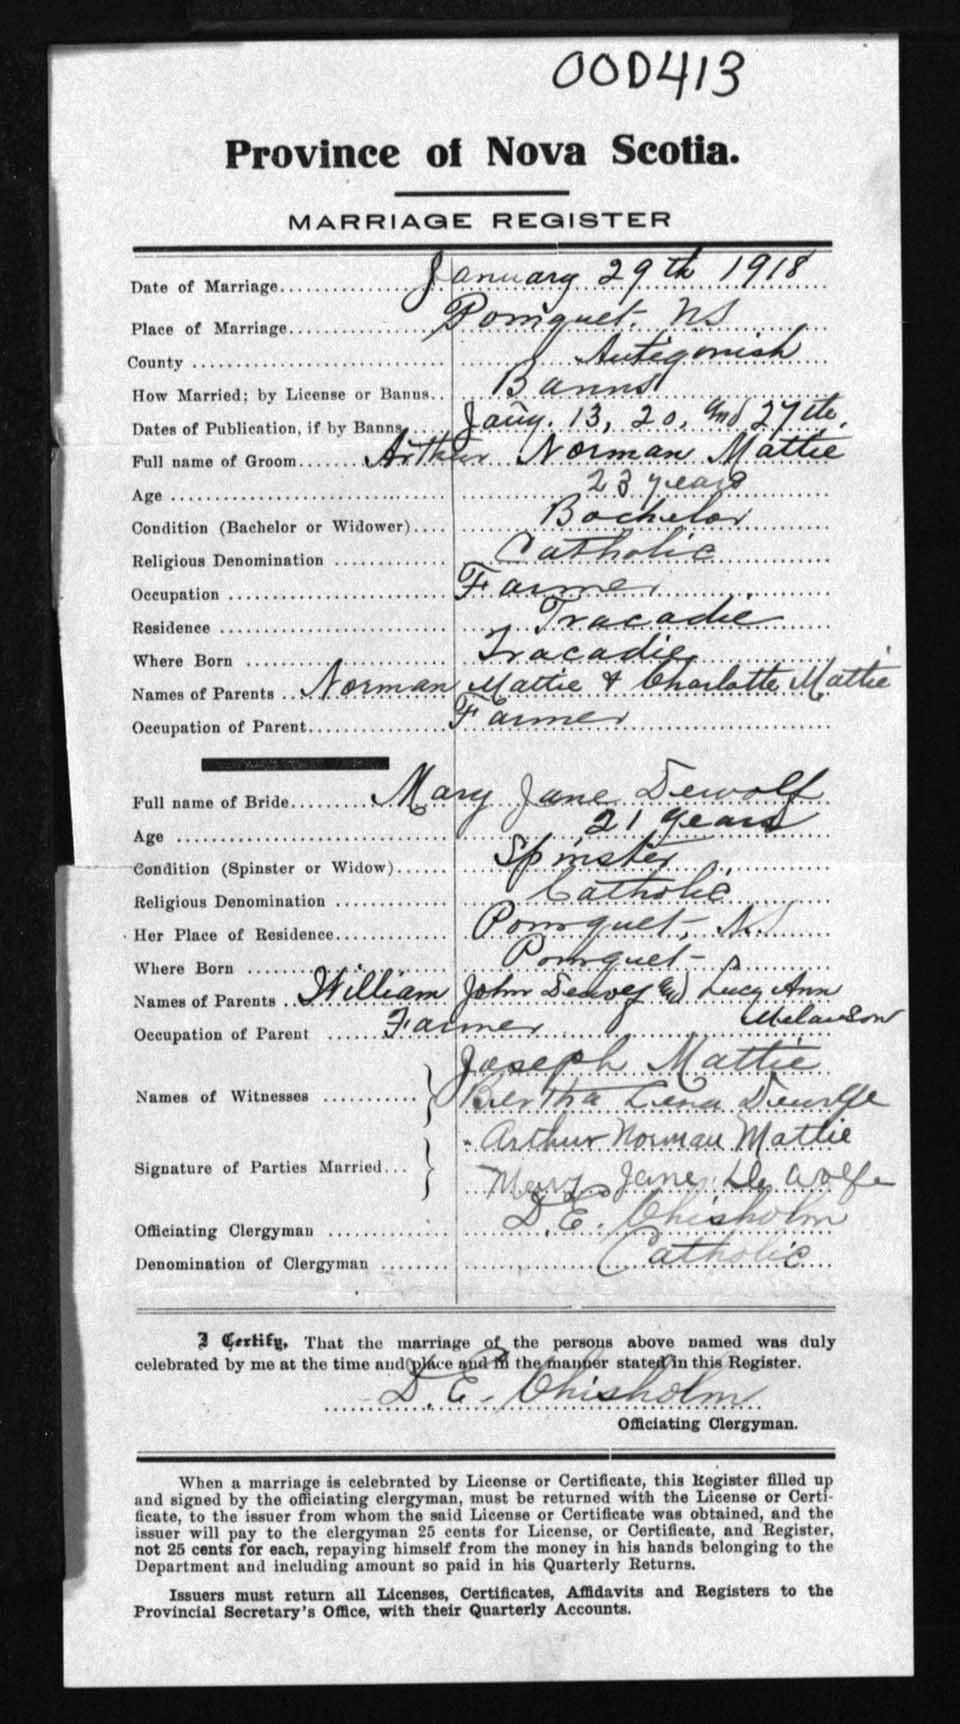 00D413
Province of Nova Scotia.
MARRIAGE REGISTER
Date of Marriage January 29th 1918
Place of Marriage Pomquet. NS
County Antigonish
How Married; by License or Banns Banns
Dates of Publication, if by Banns Jany. 13, 20, and 27th.
Full name of Groom Arthur Norman Mattie
Age 23 years
Condition (Bachelor or Widower) Bachelor
Religious Denomination Catholic
Occupation Farmer
Residence Tracadie
Where Born Tracadie
Names of Parents Norman Mattie & Charlotte Mattie
Occupation of Parent Farmer
Full name of Bride Mary Jane Dewolf
Age 21 years
Condition (Spinster or Widow) Spinster
Religious Denomination Catholic
Her Place of Residence Pomquet, N.S
Where Born Pomquet
Names of Parents William John and Lucy Ann
Melanson
Occupation of Parent Farmer
Joseph Mattie
Names of Witnesses
Bertha Lena Dewolfe
Arthur Norman Mattie
Signature of Parties Married
Mary Jane De Wolfe
Officiating Clergyman D. E. Chisholm
Denomination of Clergyman Catholic
I Certify, That the marriage of the persons above named was duly
celebrated by me at the time and place and in the manner stated in this Register.
D. E. Chisholm
Officiating Clergyman.
When a marriage is celebrated by License or Certificate, this Register filled up
and signed by the officiating clergyman, must be returned with the License or Certi-
ficate, to the issuer from whom the said License or Certificate was obtained, and the
issuer will pay to the clergyman 25 cents for License, or Certificate, and Register,
not 25 cents for each, repaying himself from the money in his hands belonging to the
Department and including amount so paid in his Quarterly Returns.
Issuers must return all Licenses, Certificates, Affidavits and Registers to the
Provincial Secretary's Office, with their Quarterly Accounts.